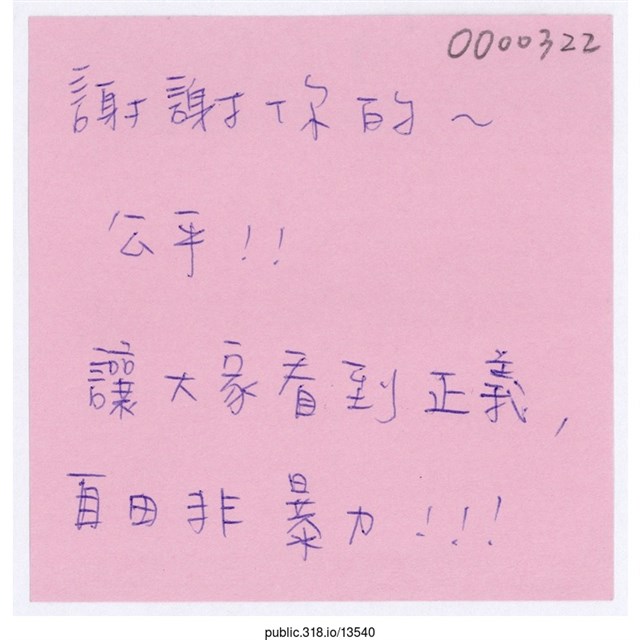 0000322
謝謝你的~
公平!!
讓大家看到正義,
自由非暴力!!!
public.318.io/13540